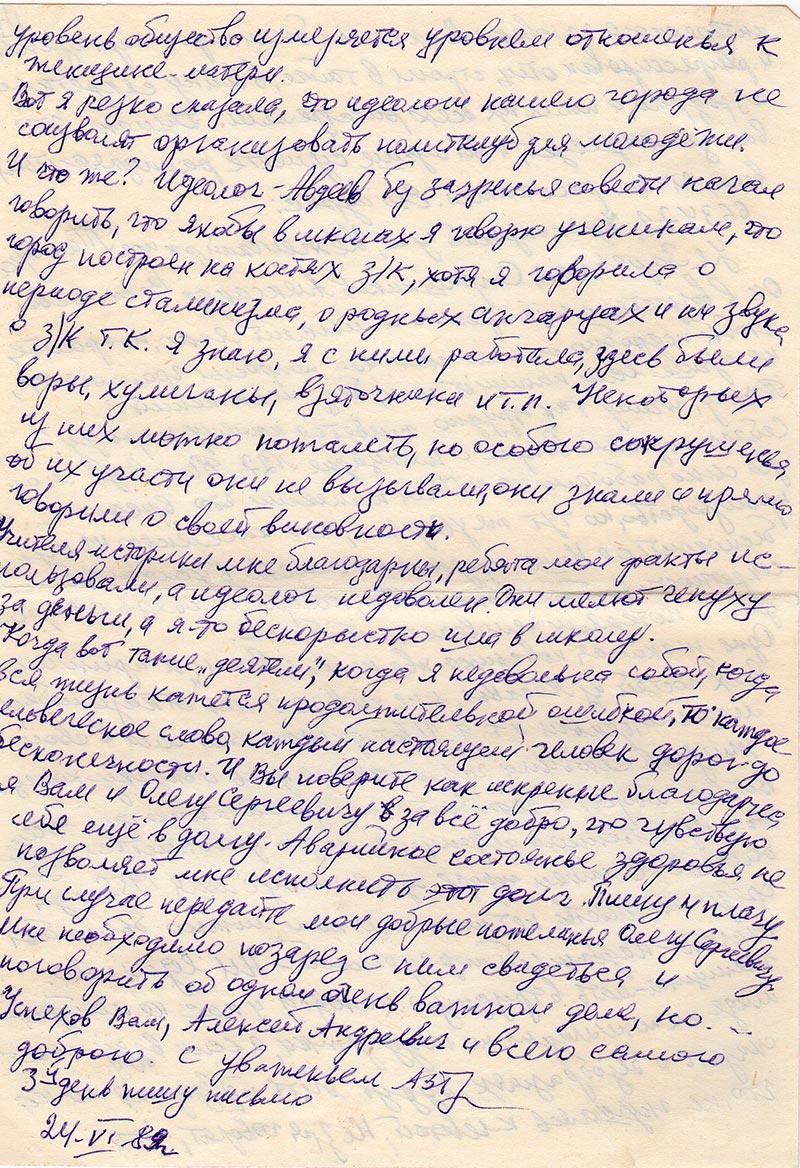 уровень общества измеряется уровнем отношенья к
женщине-матери.
Вот я резко сказала, что идеологи нашего города не
соизволят организовать политклуб для молодёжи.
И что же? Идеолог-Авдеев без зазренья совести начал
говорить, что якобы в школах я говорю ученикам, что
город построен на костях з/к, хотя я говорила о
периоде сталинизма, о родных ангарцах и ни звука
о з/к т.к. я знаю, я с ними работала, здесь были
воры, хулиганы, взяточники и т.п. Некоторых
из них можно пожалеть, но особого сокрушенья
об их участи они не вызывали, они знали и прямо
говорили о своей виновности.
Учителя-историки мне благодарны, ребята мои факты ис-
пользовали, а идеолог недоволен. Они мелют чепуху
за деньги, а я-то бескорыстно шла в школу.
Когда вот такие „деятели", когда я недовольна собой, когда
вся жизнь кажется продолжительной ошибкой, то каждое
еловеческое слово, каждый настоящий человек дорог до
бесконечности. И Вы поверите как искренне благодарна
я Вам и Олегу Сергеевичу за всё добро, что чувствую
себя ещё в долгу. Аварийное состоянье здоровья не
позволяет мне исполнить этот долг. Пишу и плачу,
При случае передайте мои добрые пожеланья Олегу Сергеевичу.
Мне необходимо позарез с ним свидеться и
поговорить об одном очень важном деле, но. –
Успехов Вам, Алексей Андреевич и всего самого
доброго. С уваженьем
3й день пишу письмо
24-VI-89г.